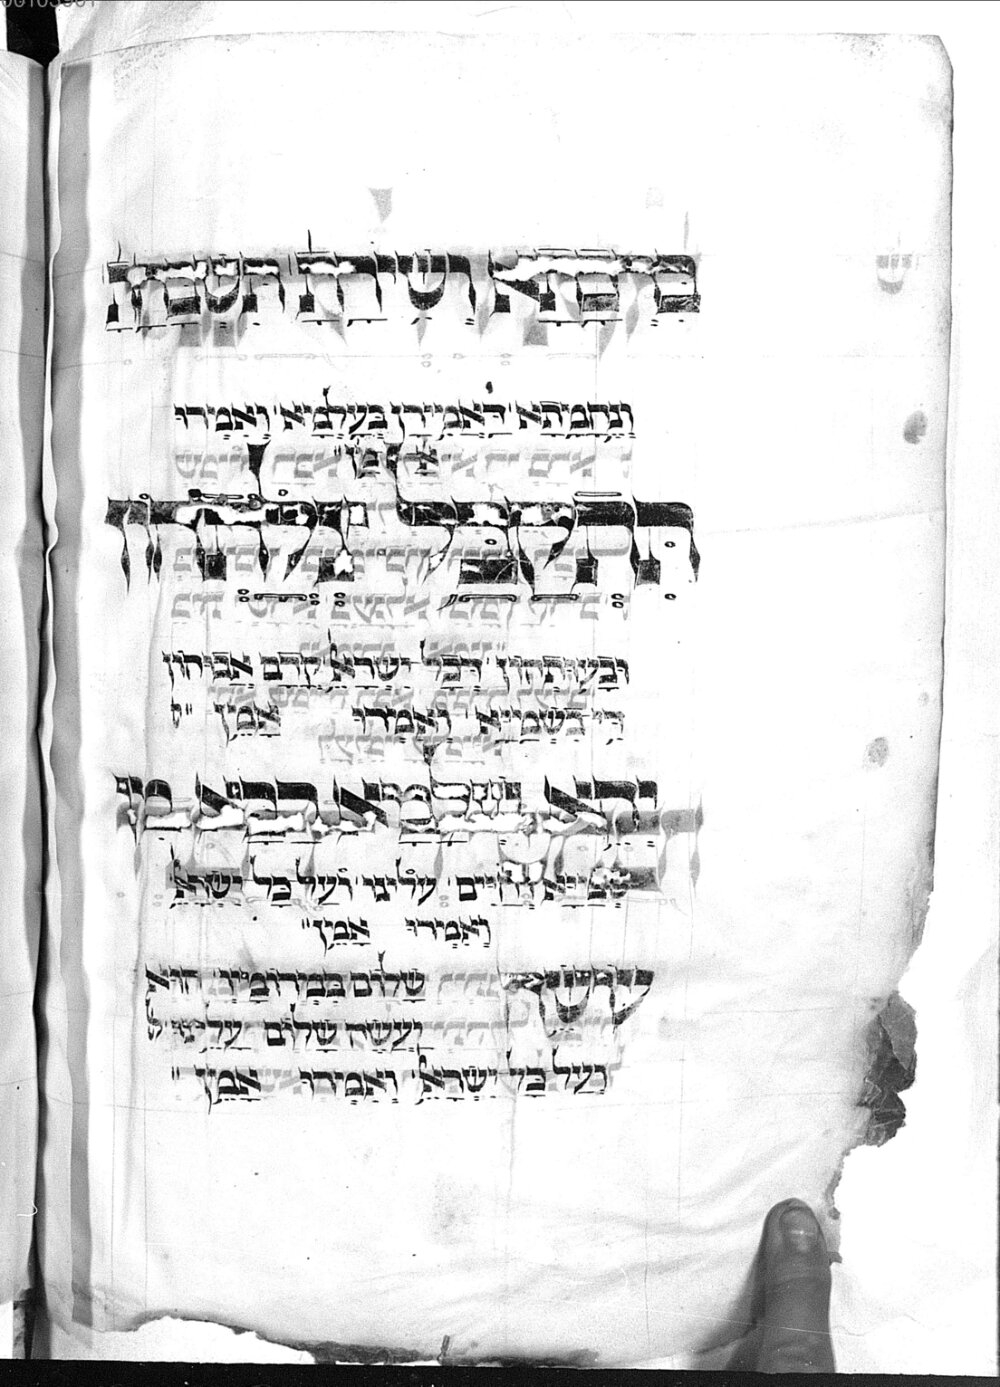 בירכתא ושירתא תשבחת
ונחמתא דאמירן בעלמא ואמרו
אמן
תתקבל צלותהון
ובעותהון דכל ישראל קדם אבוהון
די בשמייא ואמרו אמן
יהא שלמא רבא מן
שמייא וחיים עלינו ועל כל ישראל
ואמרו אמן
עושה שלום במרומיו הוא
יעשה שלום עלינו
ועל כל ישראל ואמרו אמן